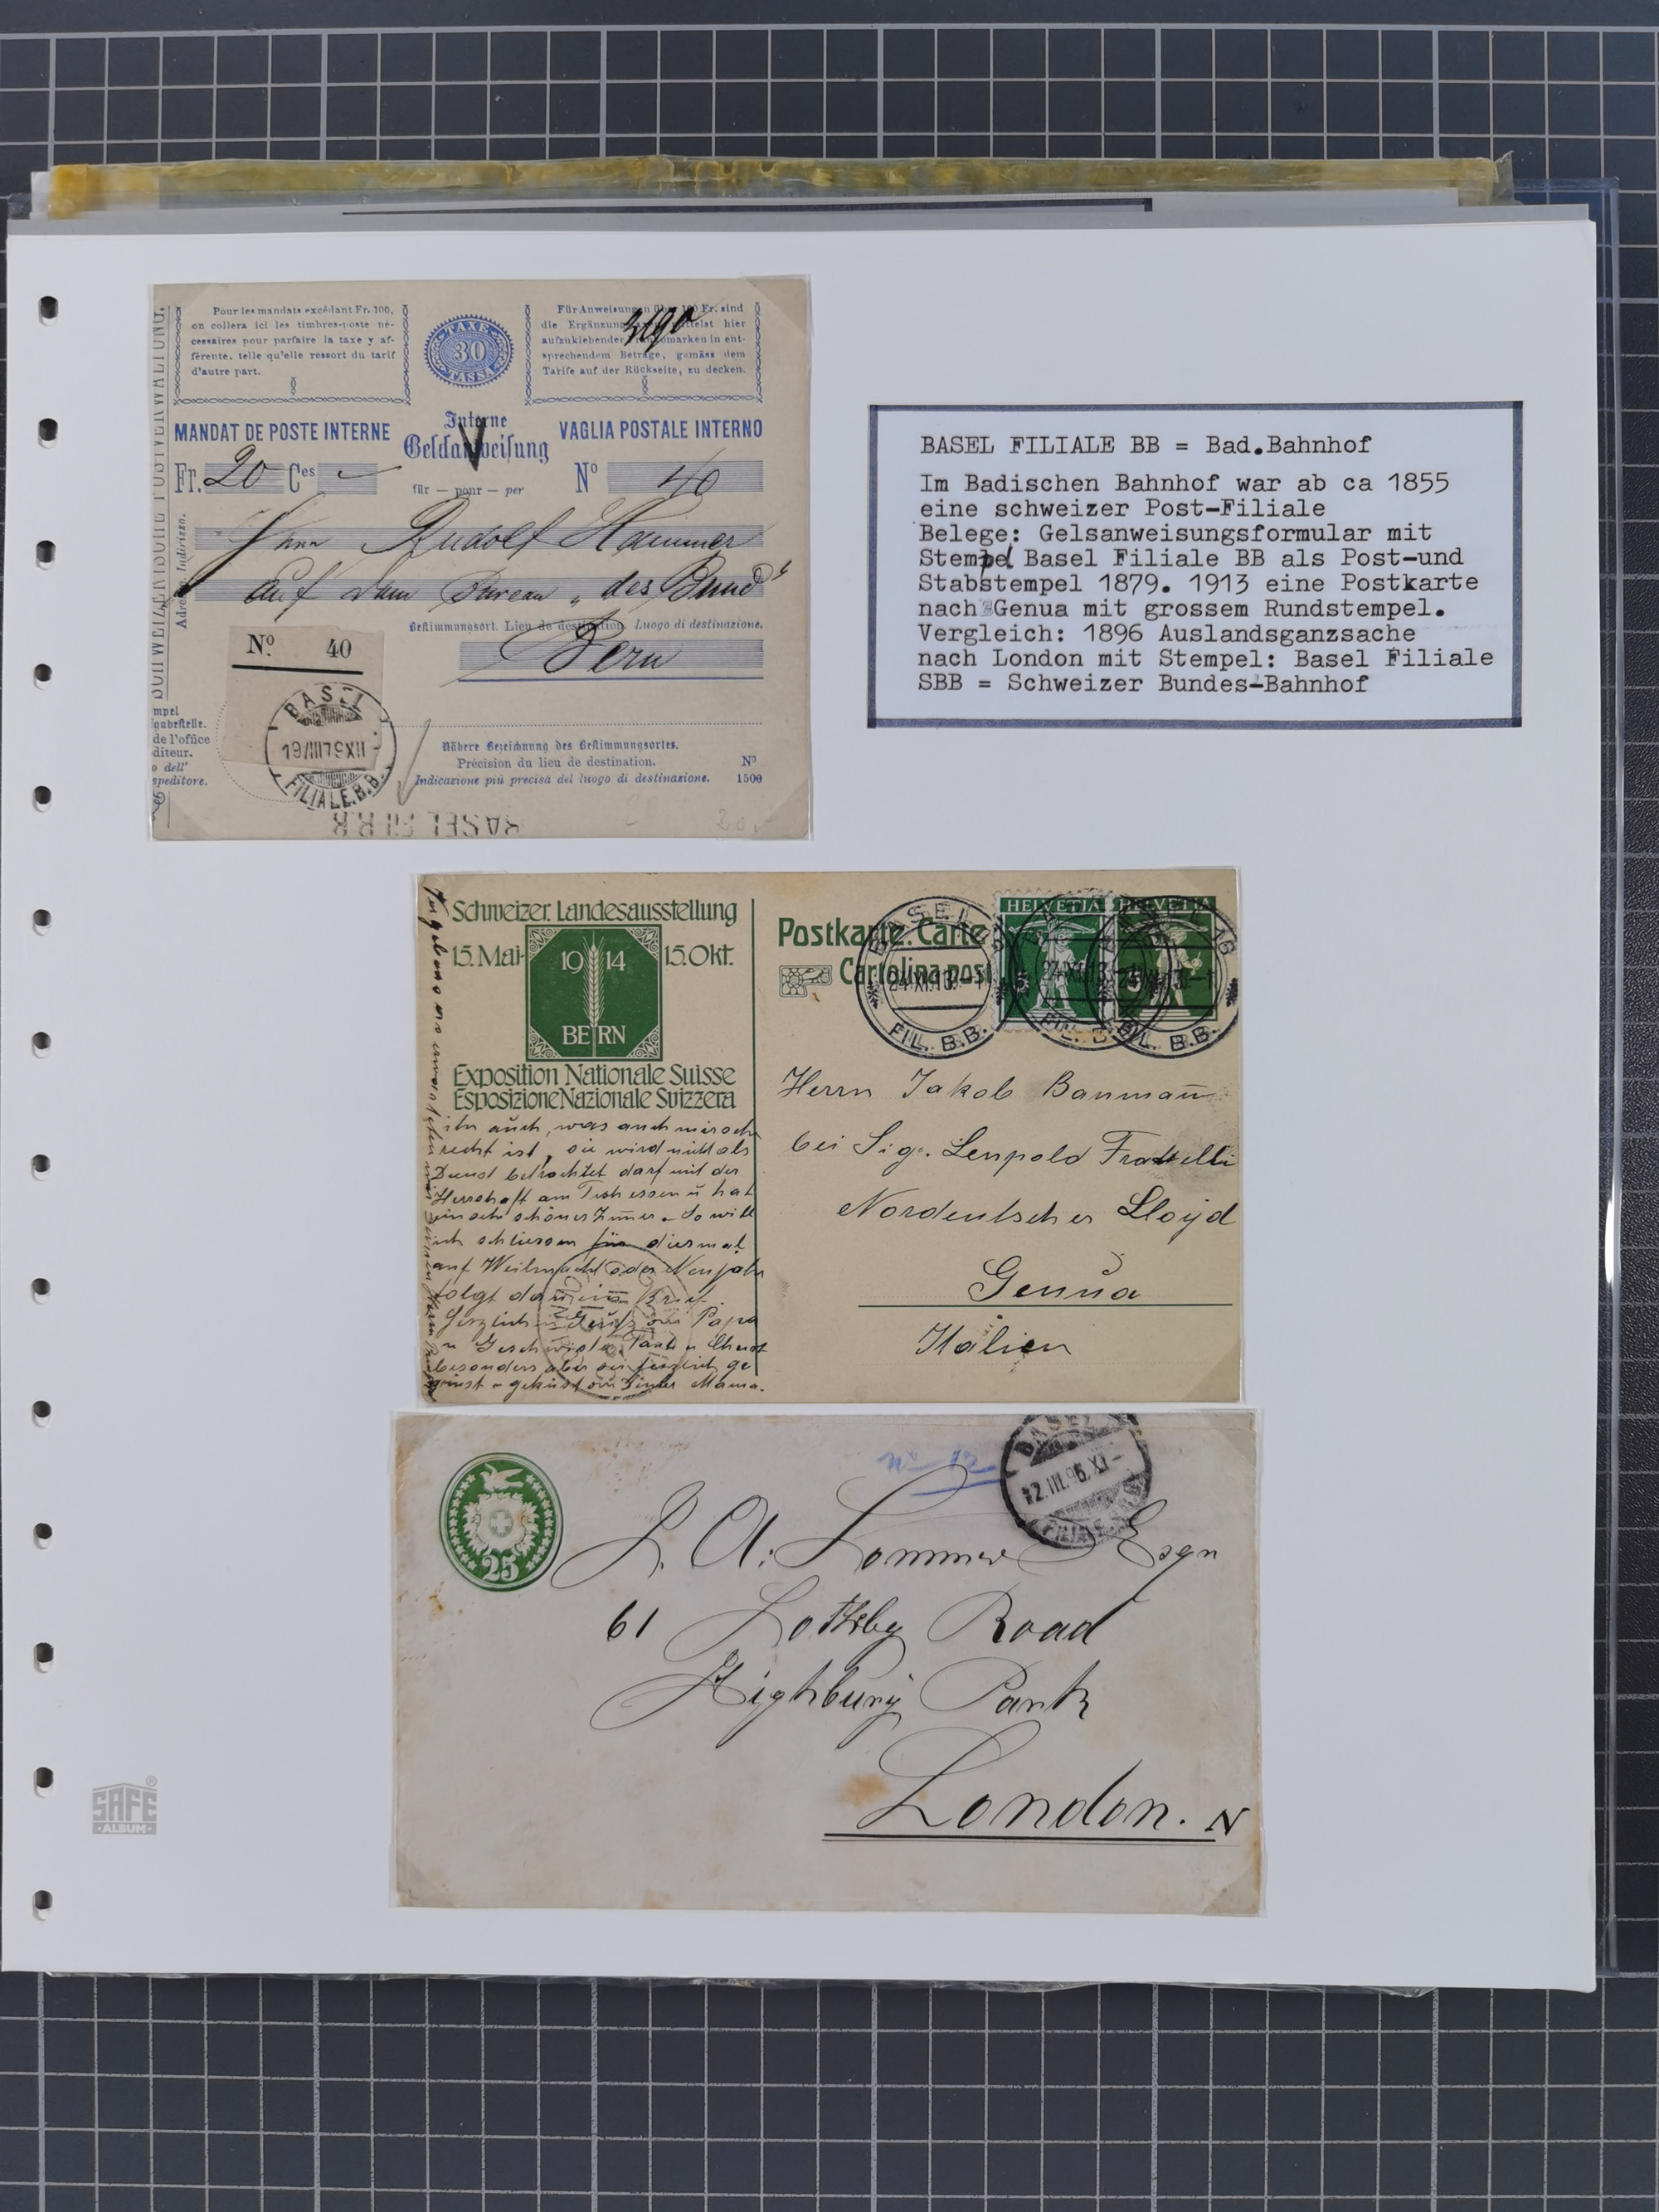 Pour les mandats excédant Fr. 100,
on collera ici les timbres-poste né-
cessaires pour parfaire la taxe y af-
férente, telle qu'elle ressort du tarif
d'autre part.
TAXE
30
TASSA
Für Anweisungen über 100 Fr. sind
die mittelst hier
aufzuklebender marken in ent-
sprechendem Betrage, gemäss dem
Tarife auf der Rückseite, zu decken.
3190
MANDAT DE POSTE INTERNE
Interne
Geldanweisung
VAGLIA POSTALE INTERNO
Fr. 20 Ces
für — pour — per
No 40
Herrn Rudolf Hammer
auf dem Bureau „des Bund"
Bestimmungsort. Lieu de destination. Luogo di destinazione.
Bern
SCHWEIZERISCHE POSTVERWALTUNG.
No. 40
BASEL
19/III79XII-
FILIALE.B.B.
mpel
gabestelle.
de l'office
diteur.
o dell'
speditore.
Nähere Bezeichnung des Bestimmungsortes.
Précision du lieu de destination.
Indicazione più precisa del luogo di destinazione.
No
1500
BASEL FIL.B.B
BASEL FILIALE BB = Bad.Bahnhof
Im Badischen Bahnhof war ab ca 1855
eine schweizer Post-Filiale
Belege: Gelsanweisungsformular mit
Stempel Basel Filiale BB als Post-und
Stabstempel 1879. 1913 eine Postkarte
nach Genua mit grossem Rundstempel.
Vergleich: 1896 Auslandsganzsache
nach London mit Stempel: Basel Filiale
SBB = Schweizer Bundes-Bahnhof
Schweizer. Landesausstellung
15. Mai- 15. Okt.
19 14
BERN
Exposition Nationale Suisse
Esposizione Nazionale Svizzera
ihr auch, was auch mir sehr
recht ist, sie wird nicht als
betrachtet darf mit der
Herrschaft am Tisch essen u hat
ein sehr schönes Zimmer. So will
ich schliessen für diesmal
auf Weihnacht oder Neujahr
folgt dann ein Brief.
Papa
besonders aber sei herzlich ge
grüsst u geküsst von Deiner Mama.
Postkarte. Carte
Cartolina post
HELVETIA
HELVETIA
BASEL
24.XI.13.-1
FIL. B.B.
24.XI.13
BASEL 16
FIL. B.B.
Herrn Jakob Baumann
bei Sig. Leupold Fratelli
Nordeutscher Lloyd
Genua
Italien
25
BASEL
12.III.96.XI-
No 12
Esqr
61 Road
Highbury Park
London. N
SAFE®
·ALBUM·